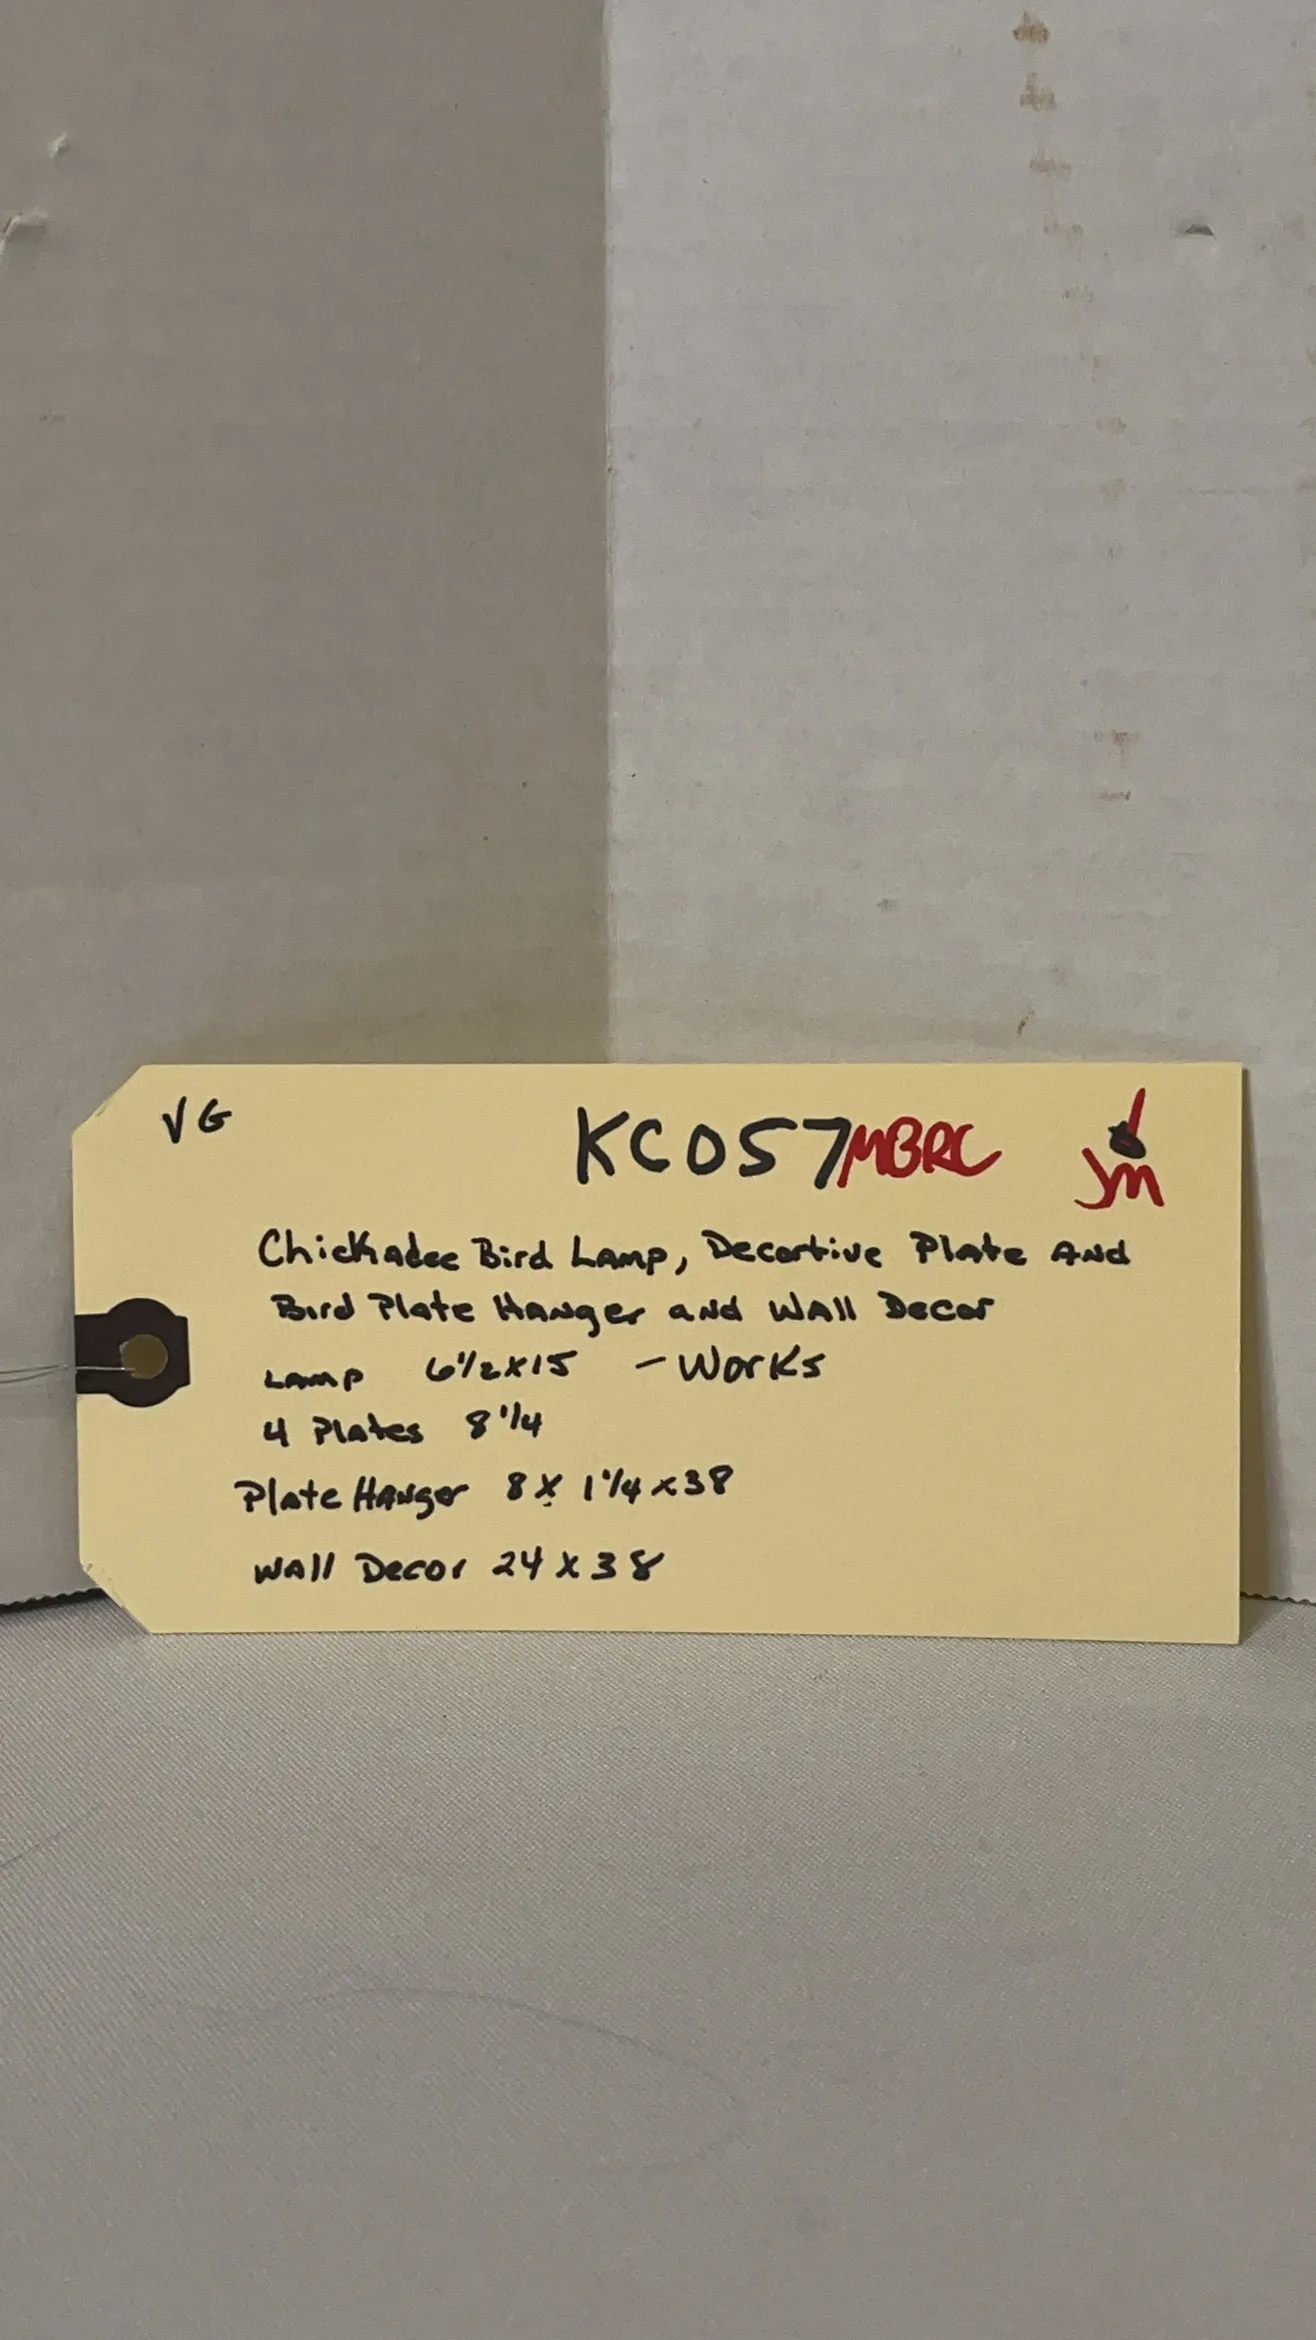 VG
KC057MBRC
JM
Chickadee Bird Lamp, Decortive Plate And
Bird Plate Hanger and Wall Decor
Lamp 6 1/2 x 15 - Works
4 Plates 8 1/4
Plate Hanger 8 x 1 1/4 x 38
Wall Decor 24 x 38